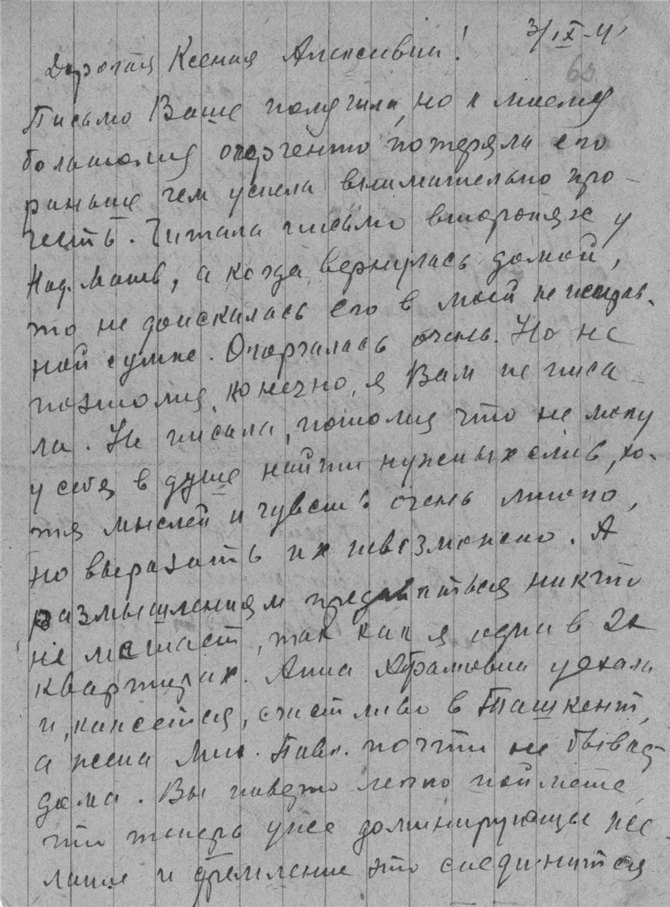 3/IX-41
Дорогая Ксения Алексеевна!
Письмо Ваше получила, но к моему
большому огорчению потеряла его
раньше чем успела внимательно про-
честь. Читала письмо второпях у
Над. Матв, а когда вернулась домой,
то не доискалась его в моей неисправ-
ной сумке. Огорчалась очень. Но не
поэтому, конечно, я Вам не писа-
ла. Не писала, потому что не могу
у себя в душе найти нужных слов, хо-
тя мыслей и чувств очень много,
но выразить их невозможно. А
размышлениям предаваться никто
не мешает, так как я одна в 2х
квартирах. Анна Абрамовна уехала
и, кажется, счастливо в Ташкент,
а жена Мих. Павл. почти не бывает
дома. Вы наверно легко поймете,
что теперь уже доминирующее же-
лание и стремление это соединиться